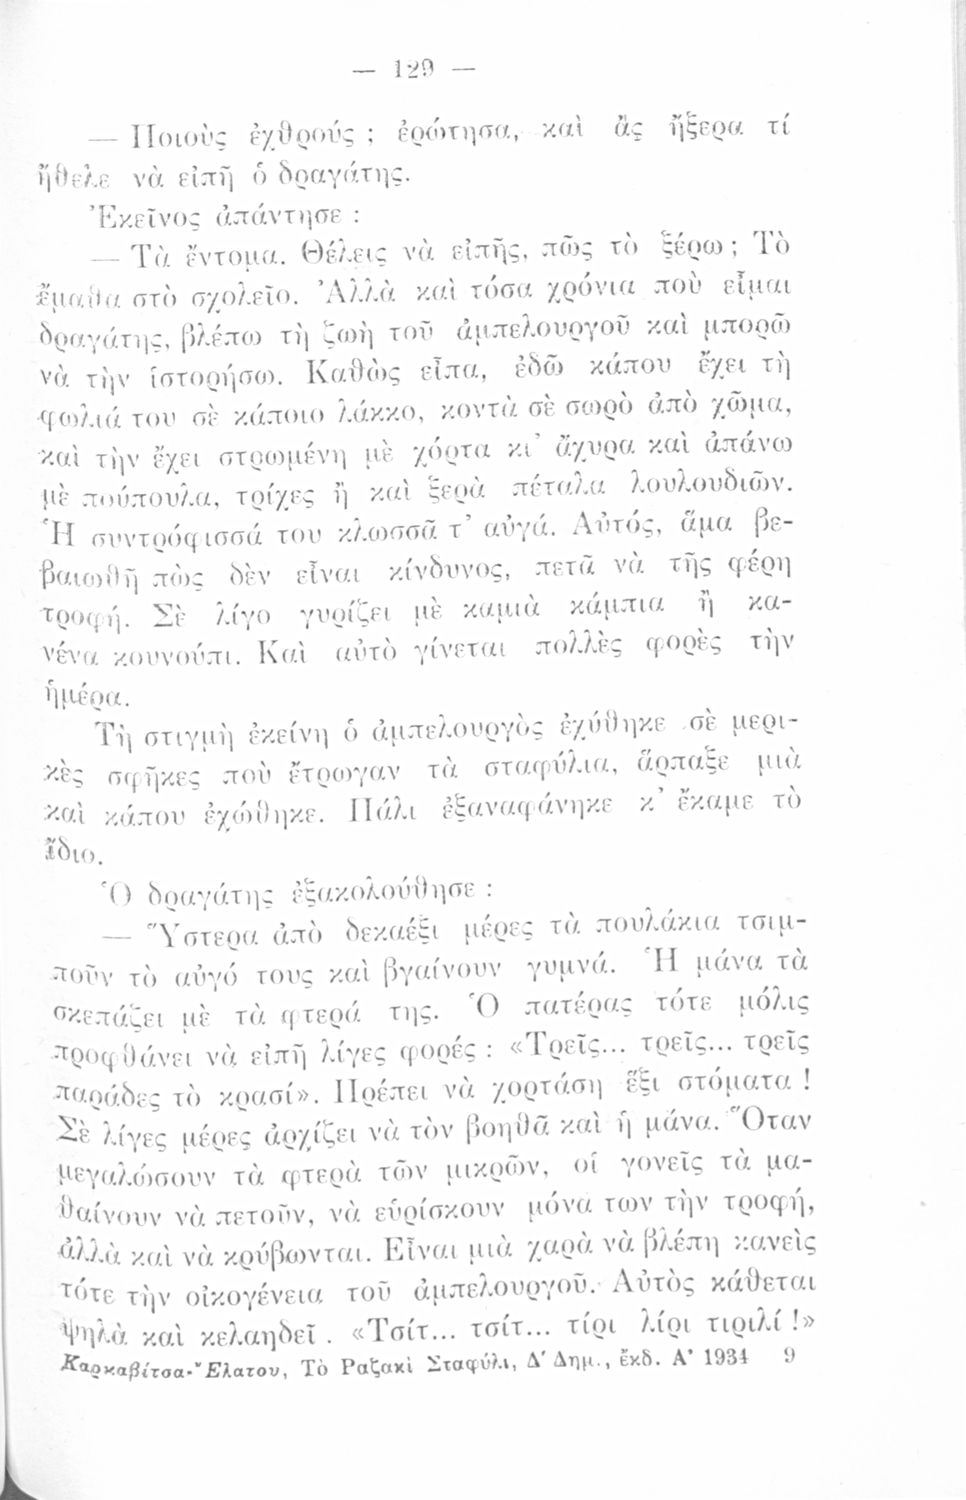 — 129 —
— Ποιοὺς ἐχθρούς ; ἐρώτησα, καὶ ἂς ἤξερα τί
ἤθελε νὰ εἰπῇ ὁ δραγάτης.
Ἐκεῖνος ἀπάντησε :
— Τὰ ἔντομα. Θέλεις νὰ εἰπῇς, πῶς τὸ ξέρω ; Τὸ
ἔμαθα στὸ σχολεῖο. Ἀλλὰ καὶ τόσα χρόνια ποὺ εἶμαι
δραγάτης, βλέπω τὴ ζωὴ τοῦ ἀμπελουργοῦ καὶ μπορῶ
νὰ τὴν ἱστορήσω. Καθὼς εἶπα, ἐδῶ κάπου ἔχει τὴ
φωλιά του σὲ κάποιο λάκκο, κοντὰ σὲ σωρὸ ἀπὸ χῶμα,
καὶ τὴν ἔχει στρωμένη μὲ χόρτα κι᾿ ἄχυρα καὶ ἀπάνω
μὲ πούπουλα, τρίχες ἢ καὶ ξερὰ πέταλα λουλουδιῶν.
Ἡ συντρόφισσά του κλωσσᾶ τ᾿ αὐγά. Αὐτός, ἅμα βε-
βαιωθῇ πὼς δὲν εἶναι κίνδυνος, πετᾶ νὰ τῆς φέρῃ
τροφή. Σὲ λίγο γυρίζει μὲ καμιὰ κάμπια ἢ κα-
νένα κουνούπι. Καὶ αὐτὸ γίνεται πολλὲς φορὲς τὴν
ἡμέρα.
Τὴ στιγμὴ ἐκείνη ὁ ἀμπελουργὸς ἐχύθηκε σὲ μερι-
κὲς σφῆκες ποὺ ἔτρωγαν τὰ σταφύλια, ἅρπαξε μιὰ
καὶ κάπου ἐχώθηκε. Πάλι ἐξαναφάνηκε κ᾿ ἔκαμε τὸ
ἴδιο.
Ὁ δραγάτης ἐξακολούθησε :
— Ὕστερα ἀπὸ δεκαέξι μέρες τὰ πουλάκια τσιμ-
ποῦν τὸ αὐγό τους καὶ βγαίνουν γυμνά. Ἡ μάνα τὰ
σκεπάζει μὲ τὰ φτερά της. Ὁ πατέρας τότε μόλις
προφθάνει νὰ εἰπῇ λίγες φορές : «Τρεῖς... τρεῖς... τρεῖς
παράδες τὸ κρασί». Πρέπει νὰ χορτάσῃ ἕξι στόματα !
Σὲ λίγες μέρες ἀρχίζει νὰ τὸν βοηθᾶ καὶ ἡ μάνα. Ὅταν
μεγαλώσουν τὰ φτερὰ τῶν μικρῶν, οἱ γονεῖς τὰ μα-
θαίνουν νὰ πετοῦν, νὰ εὑρίσκουν μόνα των τὴν τροφή,
ἀλλὰ καὶ νὰ κρύβωνται. Εἶναι μιὰ χαρὰ νὰ βλέπῃ κανεὶς
τότε τὴν οἰκογένεια τοῦ ἀμπελουργοῦ. Αὐτὸς κάθεται
ψηλὰ καὶ κελαηδεῖ . «Τσίτ... τσίτ... τίρι λίρι τιριλί !»
Καρκαβίτσα-Ἐλατου, Τὸ Ραζακὶ Σταφύλι, Δ' Δημ., ἔκδ. Α' 1934 9